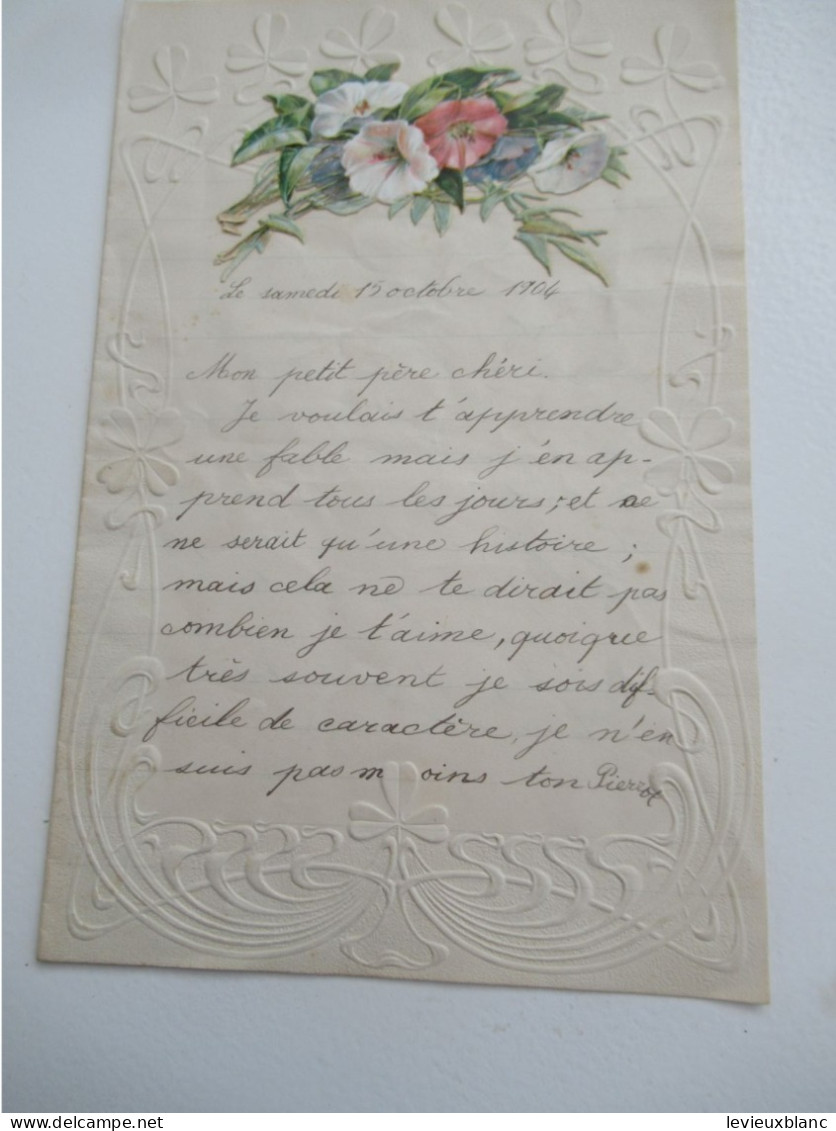 Le samedi 15 octobre 1904
Mon petit père chéri.
Je voulais t'apprendre
une fable mais j'en ap-
prend tous les jours; et ce
ne serait qu'une histoire;
mais cela ne te dirait pas
combien je t'aime, quoique
très souvent je sois dif-
ficile de caractère, je n'en
suis pas moins ton Pierrot
levieuxblanc